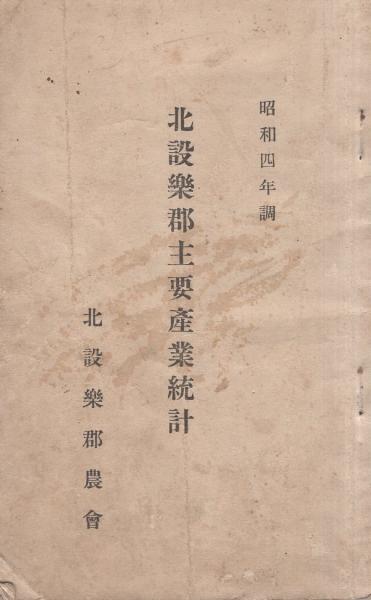 昭和四年調
北設樂郡主要產業統計
北設樂郡農會